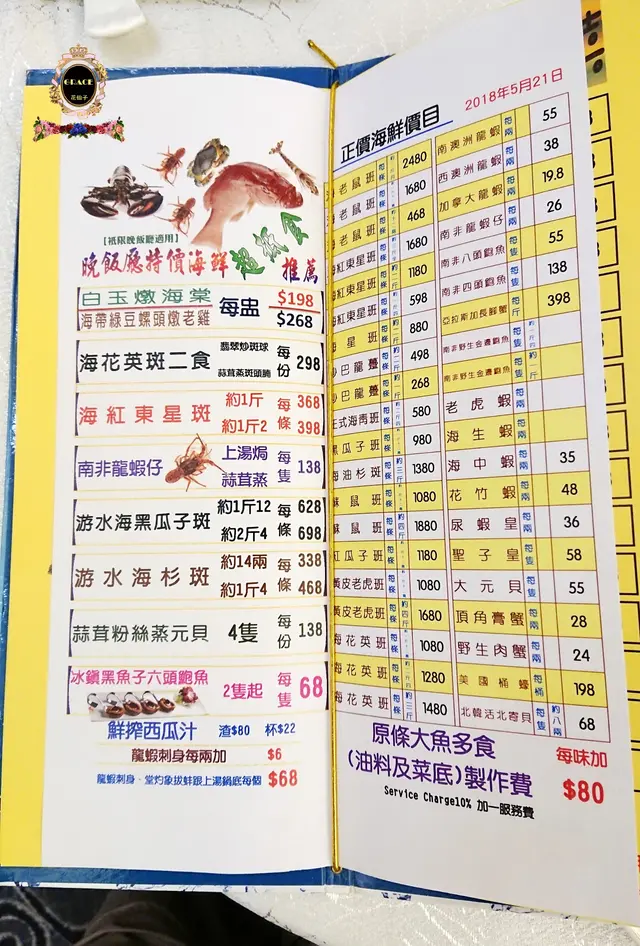 GRACE
花仙子
【祇限晚飯廳適用】
晚飯廳特價海鮮超抵食推薦
白玉燉海棠 每盅 $198
海帶綠豆螺頭燉老雞 $268
海花英斑二食 翡翠炒斑球 蒜茸蒸斑頭腩 每份 298
海紅東星斑 約1斤 每條 368
約1斤2 398
南非龍蝦仔 上湯焗 蒜茸蒸 每隻 138
游水海黑瓜子斑 約1斤12 每條 628
約2斤4 698
游水海杉斑 約14兩 每條 338
約1斤4 468
蒜茸粉絲蒸元貝 4隻 每份 138
冰鎮黑魚子六頭鮑魚 2隻起 每隻 68
鮮搾西瓜汁 渣$80 杯$22
龍蝦刺身每兩加 $6
龍蝦刺身、堂灼象拔蚌跟上湯鍋底每個 $68
2018年5月21日
正價海鮮價目
老鼠班 每條 2480
老鼠班 每條 1680
老鼠班 每條 468
紅東星班 每條 1680
紅東星班 每條 1180
紅東星班 每條 598
星班 每條 880
巴龍躉 每條 498
巴龍躉 每條 268
正式海南班 每條 580
黑瓜子班 每條 980
海油杉班 每條 約三斤 1380
鼠班 每條 1080
鼠班 每條 約四斤 1880
紅瓜子班 每條 1180
黃皮老虎班 每條 1080
黃皮老虎班 每條 約四斤 1680
海花英班 每條 1080
海花英班 每條 1280
海花英班 每條 約三斤 1480
南澳洲龍蝦 每兩 55
西澳洲龍蝦 每兩 38
加拿大龍蝦 每兩 19.8
南非龍蝦仔 每兩 26
南非八頭鮑魚 每隻 55
南非四頭鮑魚 每隻 138
亞拉斯加長腳蟹 每斤 398
南非野生金邊鮑魚 每隻
南非野生金邊鮑魚 每隻 約一斤
老虎蝦
海生蝦
海中蝦 每兩 35
花竹蝦 每兩 48
尿蝦皇 每兩 36
聖子皇 每隻 58
大元貝 每隻 55
頂角膏蟹 每兩 28
野生肉蟹 每兩 24
美國桶蠔 每桶 198
北韓活北寄貝 每隻 約八兩 68
原條大魚多食
(油料及菜底)製作費
每味加
$80
Service Charge10% 加一服務費